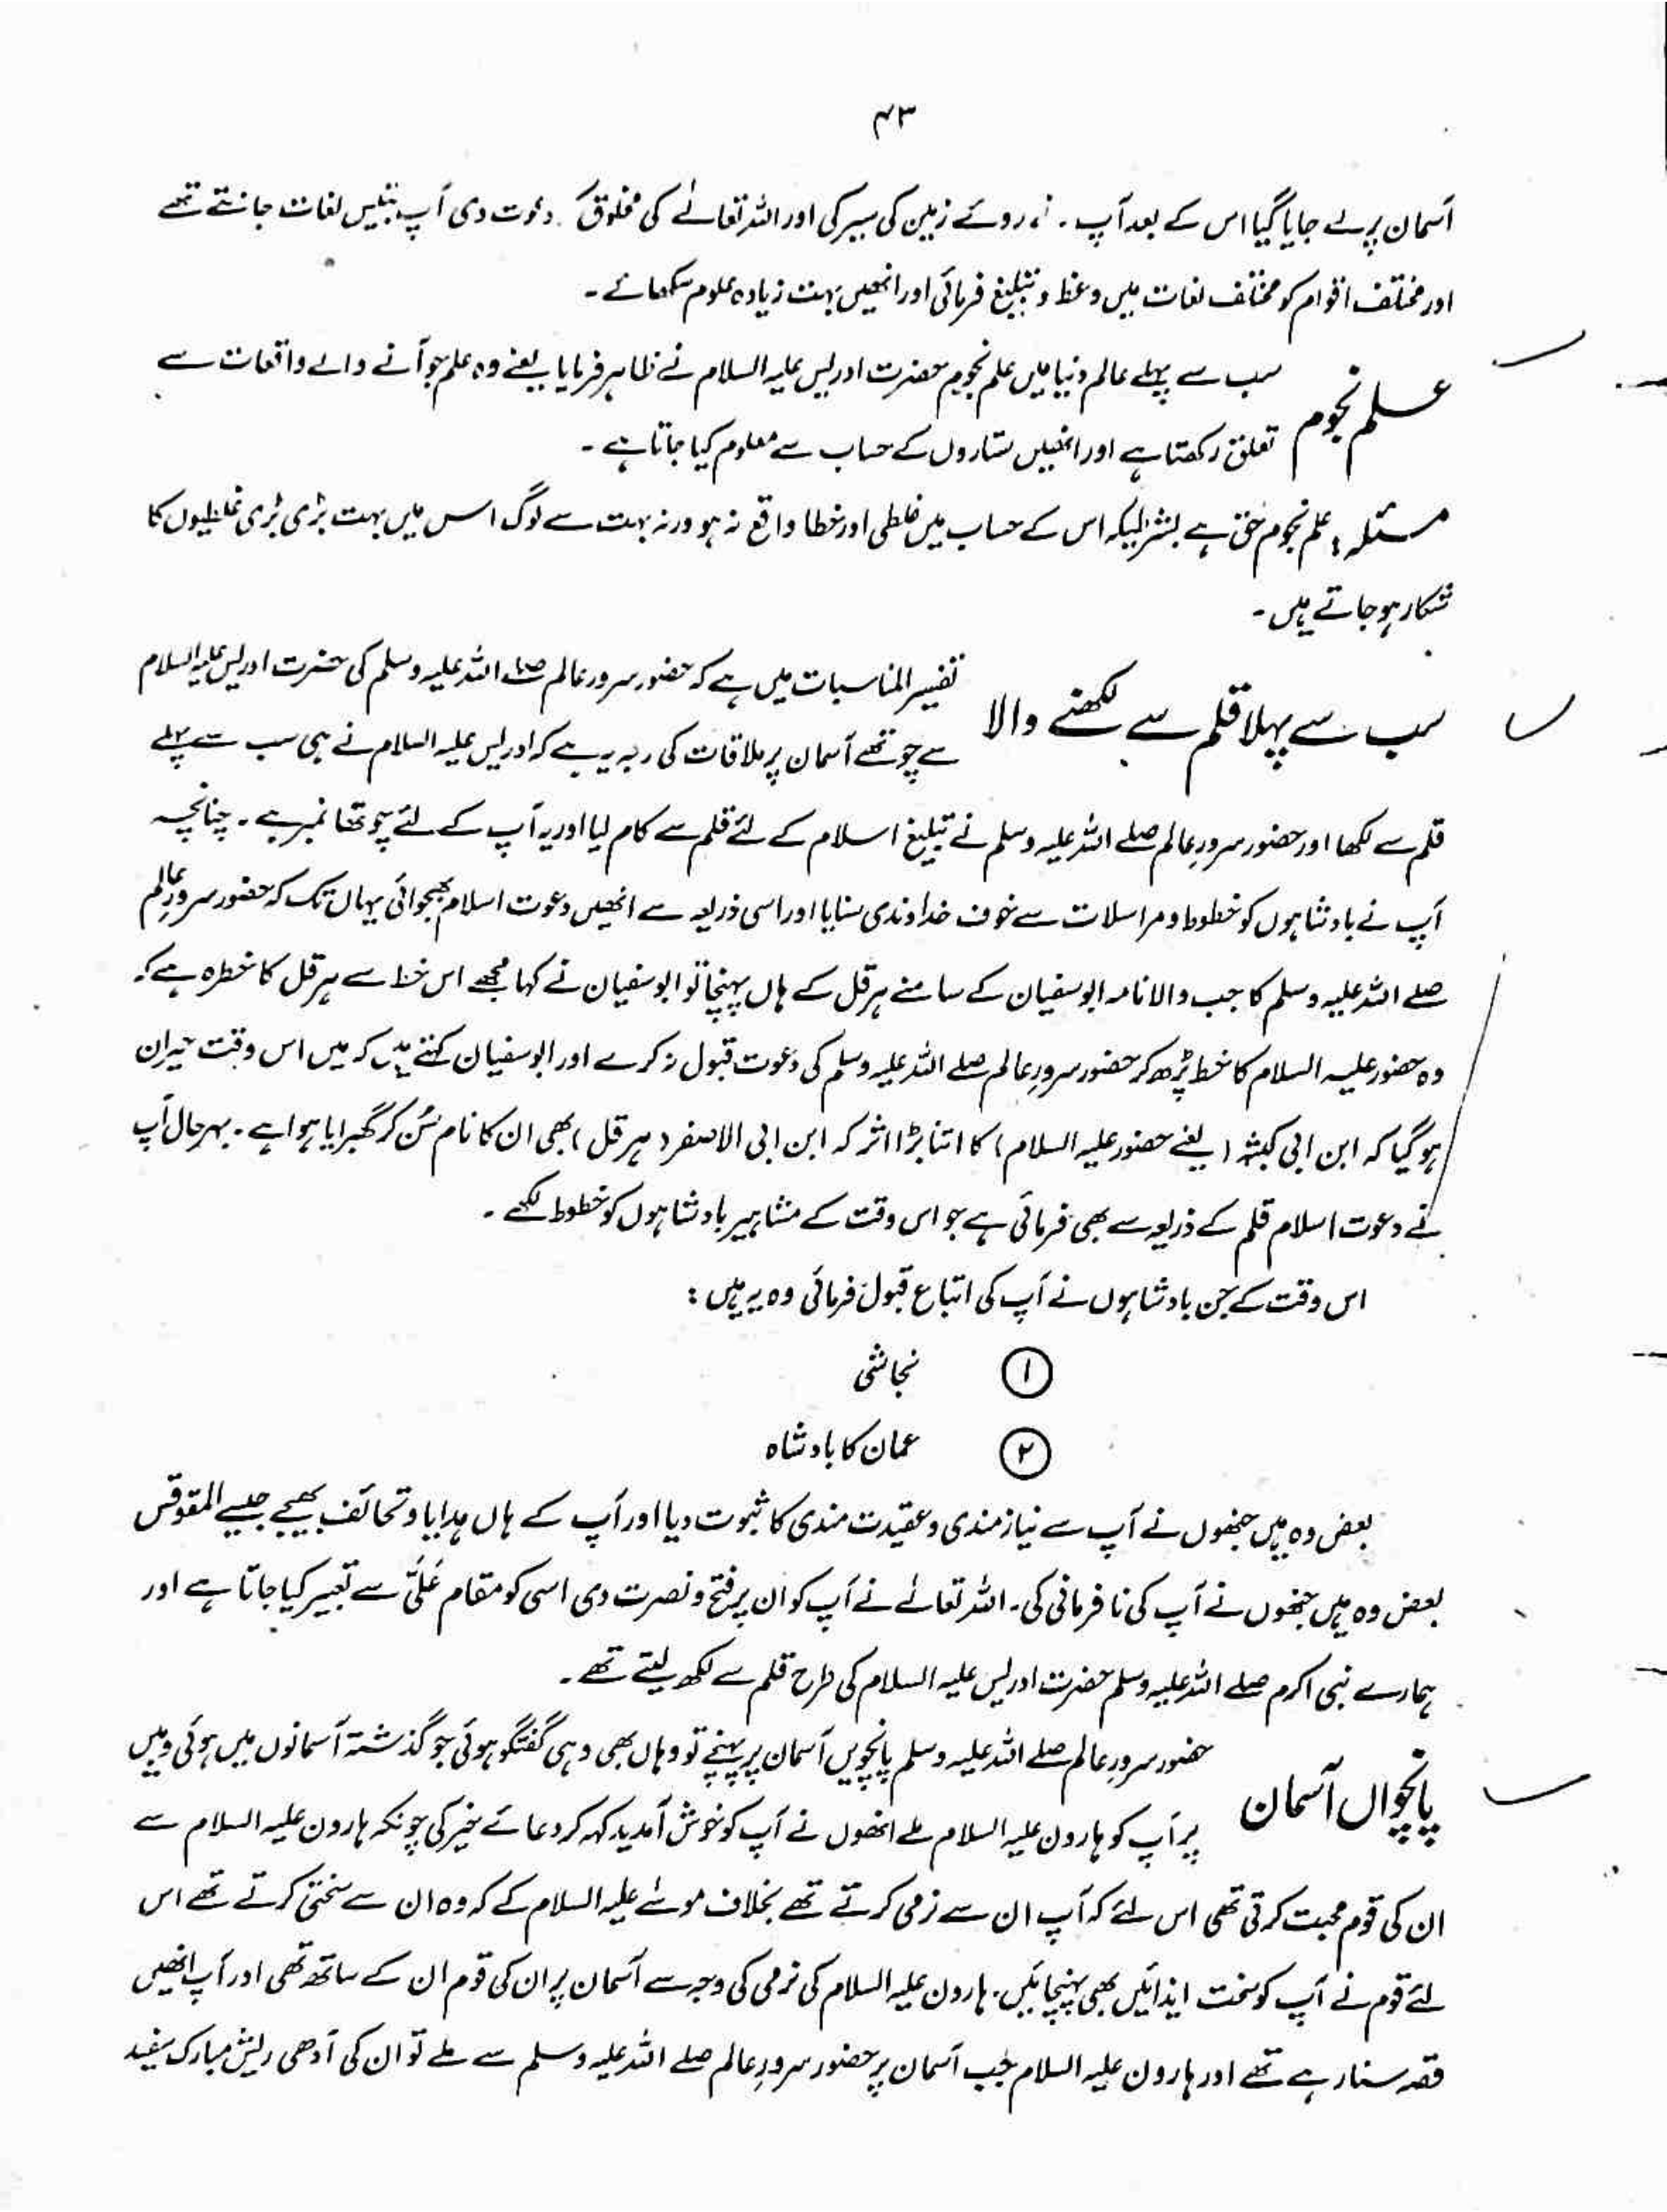 ۴۳
آسمان پر لے جایا گیا اس کے بعد آپ نے روئے زمین کی سیر کی اور اللہ تعالےٰ کی مخلوق دعوت دی آپ بتیس لغات جانتے تھے
اور مختلف اقوام کو مختلف لغات میں وعظ و تبلیغ فرمائی اور انھیں بہت زیادہ علوم سکھائے۔
علم نجوم
سب سے پہلے عالم دنیا میں علم نجوم حضرت ادریس علیہ السلام نے ظاہر فرمایا یعنے وہ علم جو آنے والے واقعات سے
تعلق رکھتا ہے اور انھیں ستاروں کے حساب سے معلوم کیا جاتا ہے۔
مسئلہ: علم نجوم حق ہے بشرطیکہ اس کے حساب میں غلطی اور خطا واقع نہ ہو ورنہ بہت سے لوگ اس میں بہت بڑی بڑی غلطیوں کا
شکار ہو جاتے ہیں۔
سب سے پہلا قلم سے لکھنے والا
تفسیر المناسبات میں ہے کہ حضور سرور عالم صلے اللہ علیہ وسلم کی حضرت ادریس علیہ السلام
سے چوتھے آسمان پر ملاقات کی وجہ یہ ہے کہ ادریس علیہ السلام نے ہی سب سے پہلے
قلم سے لکھا اور حضور سرورِ عالم صلے اللہ علیہ وسلم نے تبلیغ اسلام کے لئے قلم سے کام لیا اور یہ آپ کے لئے چوتھا نمبر ہے۔ چنانچہ
آپ نے بادشاہوں کو خطوط و مراسلات سے خوف خداوندی سنایا اور اسی ذریعہ سے انھیں دعوت اسلام بھجوائی یہاں تک کہ حضور سرورِ عالم
صلے اللہ علیہ وسلم کا جب والا نامہ ابوسفیان کے سامنے ہرقل کے ہاں پہنچا تو ابوسفیان نے کہا مجھے اس خط سے ہرقل کا خطرہ ہے کہ
وہ حضور علیہ السلام کا خط پڑھ کر حضور سرورِ عالم صلے اللہ علیہ وسلم کی دعوت قبول نہ کرے اور ابوسفیان کہتے ہیں کہ میں اس وقت حیران
ہو گیا کہ ابن ابی کبشہ (یعنے حضور علیہ السلام) کا اتنا بڑا اثر کہ ابن ابی الاصفر (ہرقل) بھی ان کا نام سُن کر گھبرایا ہوا ہے۔ بہر حال آپ
نے دعوت اسلام قلم کے ذریعہ سے بھی فرمائی ہے جو اس وقت کے مشاہیر بادشاہوں کو خطوط لکھے۔
اس وقت کے جن بادشاہوں نے آپ کی اتباع قبول فرمائی وہ یہ ہیں:
① نجاشی
② عمان کا بادشاہ
بعض وہ ہیں جنھوں نے آپ سے نیاز مندی و عقیدت مندی کا ثبوت دیا اور آپ کے ہاں ہدایا و تحائف بھیجے جیسے المقوقس
بعض وہ ہیں جنھوں نے آپ کی نافرمانی کی۔ اللہ تعالےٰ نے آپ کو ان پر فتح و نصرت دی اسی کو مقام عَلیّ سے تعبیر کیا جاتا ہے اور
ہمارے نبی اکرم صلے اللہ علیہ وسلم حضرت ادریس علیہ السلام کی طرح قلم سے لکھ لیتے تھے۔
پانچواں آسمان
حضور سرورِ عالم صلے اللہ علیہ وسلم پانچویں آسمان پر پہنچے تو وہاں بھی وہی گفتگو ہوئی جو گذشتہ آسمانوں میں ہوئی وہیں
پر آپ کو ہارون علیہ السلام ملے انھوں نے آپ کو خوش آمدید کہہ کر دعائے خیر کی چونکہ ہارون علیہ السلام سے
ان کی قوم محبت کرتی تھی اس لئے کہ آپ ان سے نرمی کرتے تھے بخلاف موسٰے علیہ السلام کے کہ وہ ان سے سختی کرتے تھے اس
لئے قوم نے آپ کو سخت ایذائیں بھی پہنچائیں۔ ہارون علیہ السلام کی نرمی کی وجہ سے آسمان پر ان کی قوم ان کے ساتھ تھی اور آپ انھیں
قصہ سنا رہے تھے اور ہارون علیہ السلام جب آسمان پر حضور سرورِ عالم صلے اللہ علیہ وسلم سے ملے تو ان کی آدھی ریش مبارک سفید